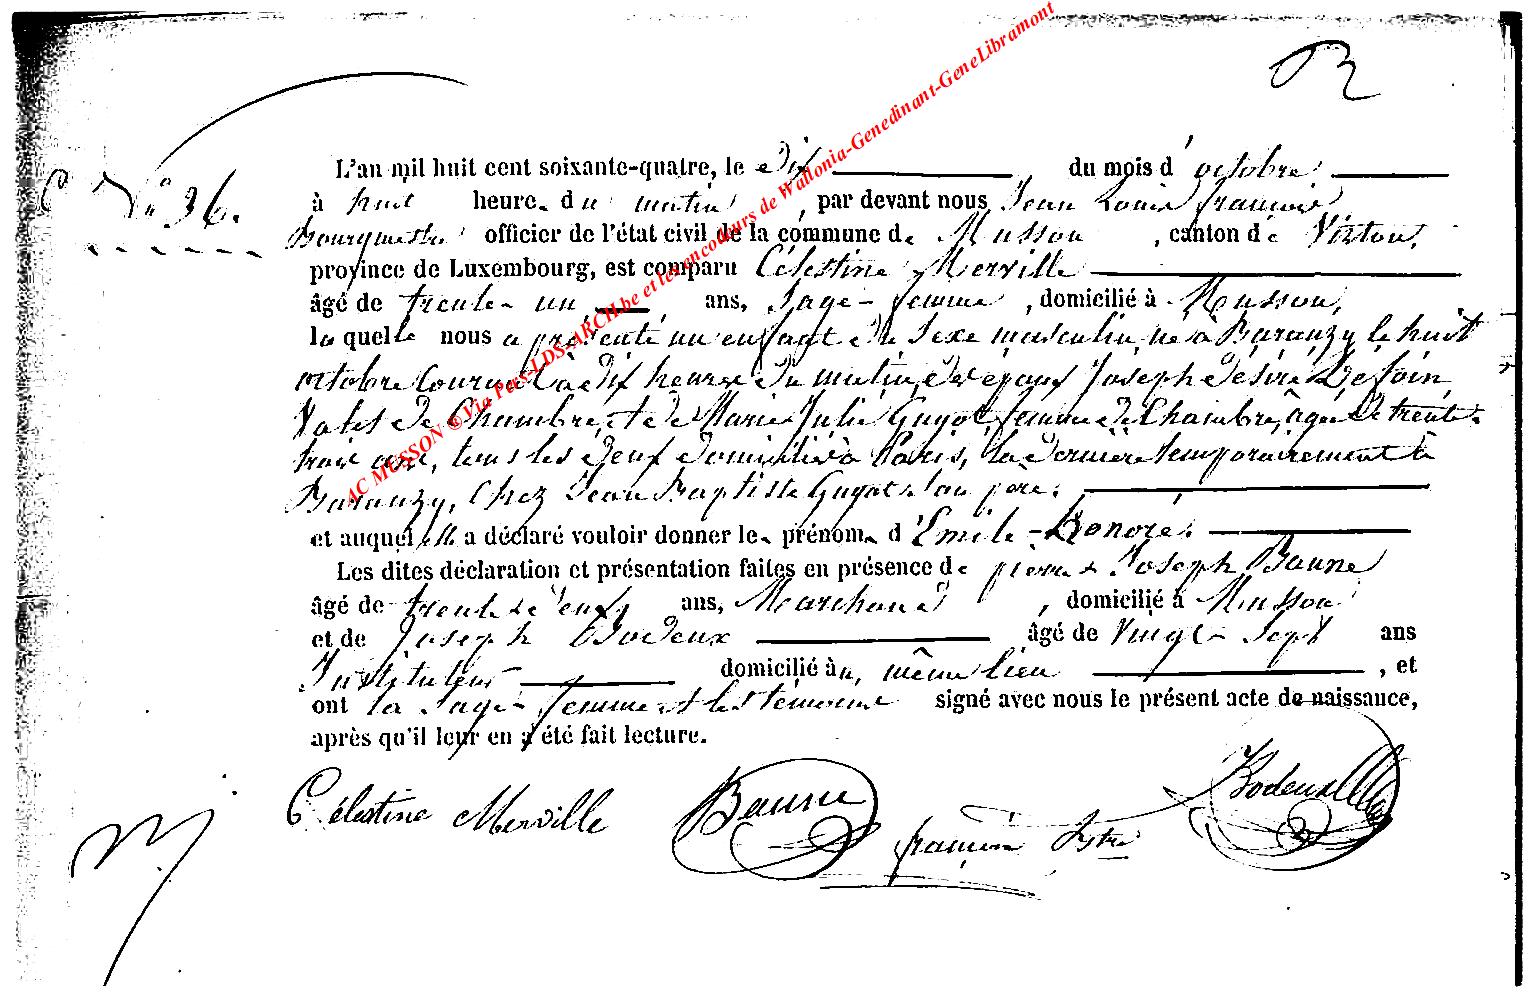 L'an mil huit cent soixante-quatre, le Dix du mois d'octobre
N° 36. à huit heure. du matin, par devant nous Jean Louis françois
Bourgmestre officier de l'état civil de la commune de Musson, canton de Virton,
province de Luxembourg, est comparu Célestine Merville
âgé de trente-un ans, Sage-femme, domicilié à Musson,
laquelle nous a présenté un enfant du Sexe masculin, né à Baranzy le huit
octobre Courant à dix heures du matin, des époux Joseph Désiré Défoin
Valet de Chambre, et de Marie Julie Guyot femme de Chambre, âgés de trente-
trois ans, tous les deux domiciliés à Paris, la dernière temporairement à
Baranzy, Chez Jean Baptiste Guyot son père.
et auquel elle a déclaré vouloir donner les prénoms d'Emile-Honoré.
Les dites déclaration et présentation faites en présence de pierre Joseph Baune
âgé de trente neuf ans, Marchand, domicilié à Musson
et de Joseph Bodeux âgé de Vingt-Sept ans
Instituteur domicilié au même lieu, et
ont la Sage-femme et les témoins signé avec nous le présent acte de naissance,
après qu'il leur en a été fait lecture.
Célestine Merville Baune françois Bodeux
AC MUSSON © Via Pers-LDS-ARCH.be et les encodeurs de Wallonia-Genedinant-GeneLibramont